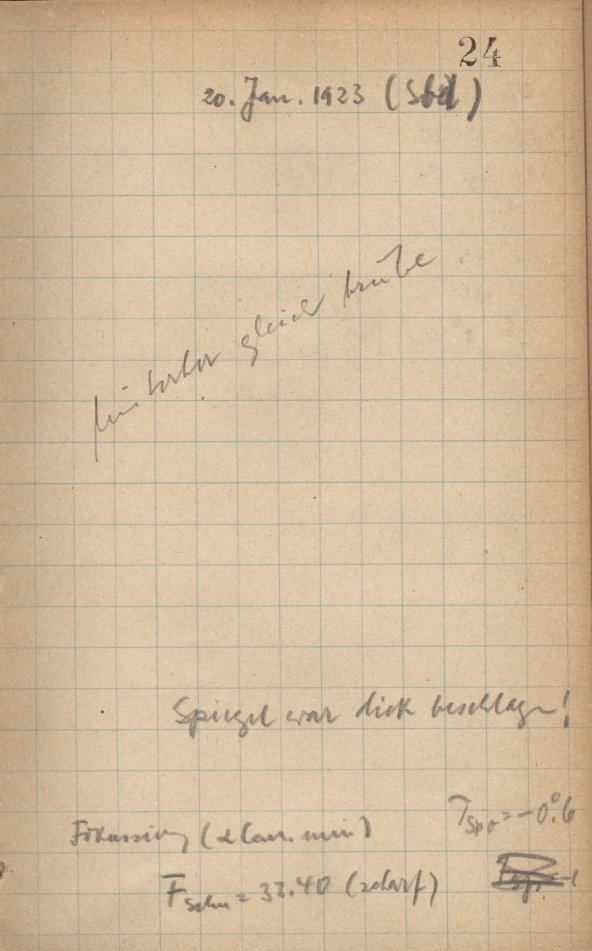 24
20. Jan. 1923 (Sbd)
hinterher gleich trübe
Spiegel war dick beschlagen!
T_Spr = -0°.6
Fokussierung (α Can. min)
F_Schn = 33.40 (scharf)